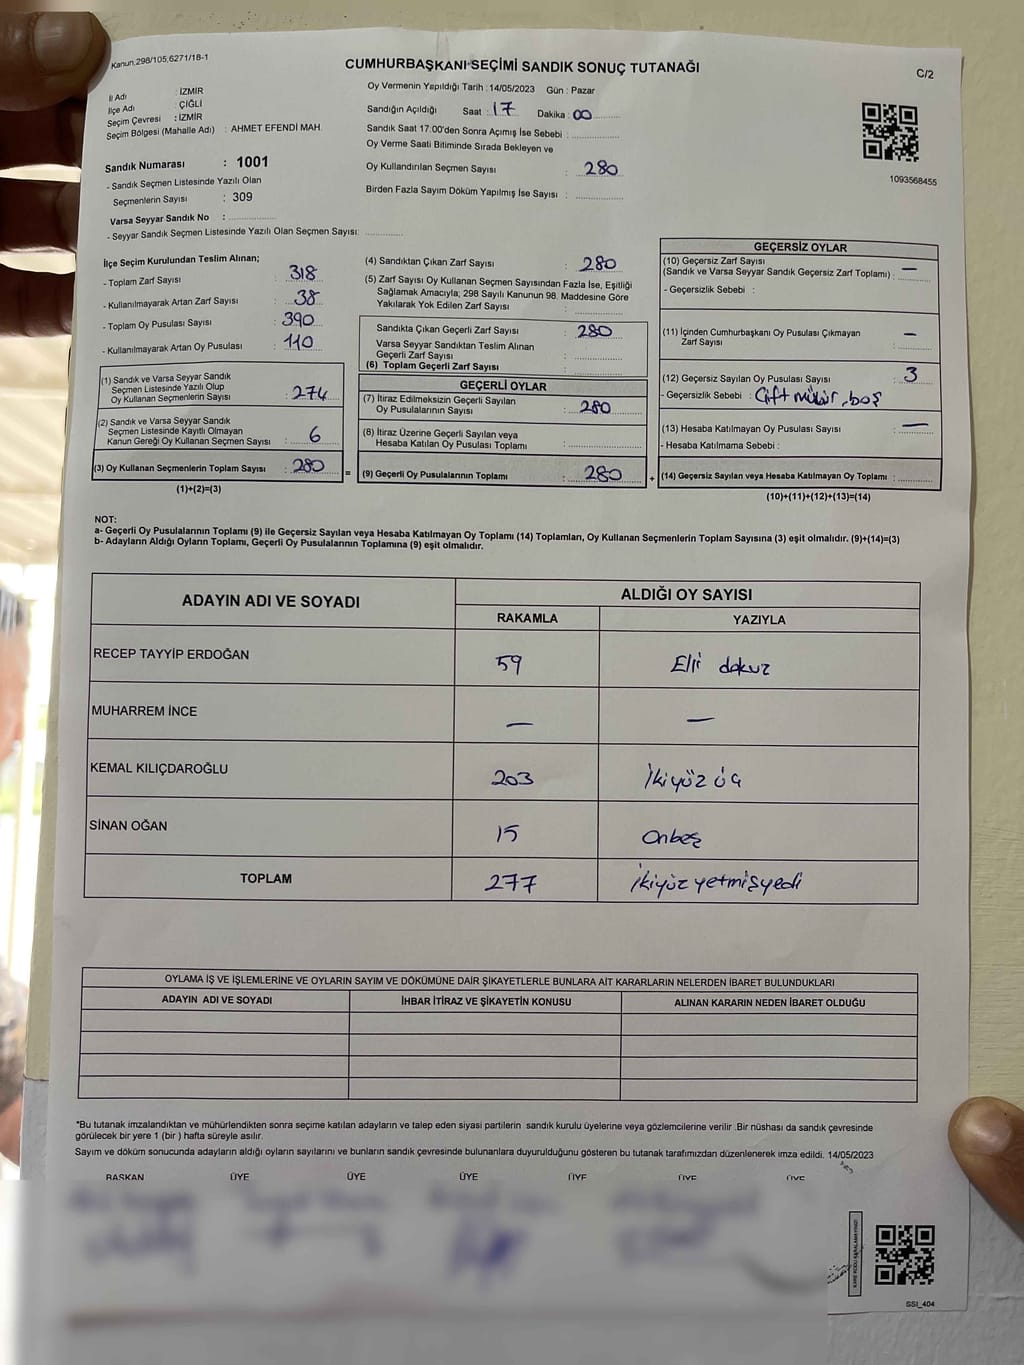 Kanun.298/105;6271/18-1
CUMHURBAŞKANI SEÇİMİ SANDIK SONUÇ TUTANAĞI
C/2
İl Adı : İZMİR
İlçe Adı : ÇİĞLİ
Seçim Çevresi : İZMİR
Seçim Bölgesi (Mahalle Adı) : AHMET EFENDİ MAH.
Sandık Numarası : 1001
- Sandık Seçmen Listesinde Yazılı Olan
Seçmenlerin Sayısı : 309
Varsa Seyyar Sandık No :
- Seyyar Sandık Seçmen Listesinde Yazılı Olan Seçmen Sayısı:
Oy Vermenin Yapıldığı Tarih : 14/05/2023 Gün : Pazar
Sandığın Açıldığı Saat : 17 Dakika : 00
Sandık Saat 17:00'den Sonra Açımış İse Sebebi :
Oy Verme Saati Bitiminde Sırada Bekleyen ve
Oy Kullandırılan Seçmen Sayısı : 280
Birden Fazla Sayım Döküm Yapılmış İse Sayısı :
1093568455
İlçe Seçim Kurulundan Teslim Alınan;
- Toplam Zarf Sayısı : 318
- Kullanılmayarak Artan Zarf Sayısı : 38
- Toplam Oy Pusulası Sayısı : 390
- Kullanılmayarak Artan Oy Pusulası : 110
(1) Sandık ve Varsa Seyyar Sandık
Seçmen Listesinde Yazılı Olup
Oy Kullanan Seçmenlerin Sayısı : 274
(2) Sandık ve Varsa Seyyar Sandık
Seçmen Listesinde Kayıtlı Olmayan
Kanun Gereği Oy Kullanan Seçmen Sayısı : 6
(3) Oy Kullanan Seçmenlerin Toplam Sayısı : 280
(1)+(2)=(3)
=
(4) Sandıktan Çıkan Zarf Sayısı : 280
(5) Zarf Sayısı Oy Kullanan Seçmen Sayısından Fazla İse, Eşitliği
Sağlamak Amacıyla; 298 Sayılı Kanunun 98. Maddesine Göre
Yakılarak Yok Edilen Zarf Sayısı :
Sandıkta Çıkan Geçerli Zarf Sayısı : 280
Varsa Seyyar Sandıktan Teslim Alınan
Geçerli Zarf Sayısı :
(6) Toplam Geçerli Zarf Sayısı :
GEÇERLİ OYLAR
(7) İtiraz Edilmeksizin Geçerli Sayılan
Oy Pusulalarının Sayısı : 280
(8) İtiraz Üzerine Geçerli Sayılan veya
Hesaba Katılan Oy Pusulası Toplamı :
(9) Geçerli Oy Pusulalarının Toplamı : 280
+
GEÇERSİZ OYLAR
(10) Geçersiz Zarf Sayısı
(Sandık ve Varsa Seyyar Sandık Geçersiz Zarf Toplamı) : —
- Geçersizlik Sebebi :
(11) İçinden Cumhurbaşkanı Oy Pusulası Çıkmayan
Zarf Sayısı : —
(12) Geçersiz Sayılan Oy Pusulası Sayısı : 3
- Geçersizlik Sebebi : Çift mühür, boş
(13) Hesaba Katılmayan Oy Pusulası Sayısı : —
- Hesaba Katılmama Sebebi :
(14) Geçersiz Sayılan veya Hesaba Katılmayan Oy Toplamı :
(10)+(11)+(12)+(13)=(14)
NOT:
a- Geçerli Oy Pusulalarının Toplamı (9) ile Geçersiz Sayılan veya Hesaba Katılmayan Oy Toplamı (14) Toplamları, Oy Kullanan Seçmenlerin Toplam Sayısına (3) eşit olmalıdır. (9)+(14)=(3)
b- Adayların Aldığı Oyların Toplamı, Geçerli Oy Pusulalarının Toplamına (9) eşit olmalıdır.
ADAYIN ADI VE SOYADI
ALDIĞI OY SAYISI
RAKAMLA YAZIYLA
RECEP TAYYİP ERDOĞAN 59 Elli dokuz
MUHARREM İNCE — —
KEMAL KILIÇDAROĞLU 203 İkiyüz üç
SİNAN OĞAN 15 Onbeş
TOPLAM 277 İkiyüz yetmişyedi
OYLAMA İŞ VE İŞLEMLERİNE VE OYLARIN SAYIM VE DÖKÜMÜNE DAİR ŞİKAYETLERLE BUNLARA AİT KARARLARIN NELERDEN İBARET BULUNDUKLARI
ADAYIN ADI VE SOYADI İHBAR İTİRAZ VE ŞİKAYETİN KONUSU ALINAN KARARIN NEDEN İBARET OLDUĞU
*Bu tutanak imzalandıktan ve mühürlendikten sonra seçime katılan adayların ve talep eden siyasi partilerin sandık kurulu üyelerine veya gözlemcilerine verilir .Bir nüshası da sandık çevresinde
görülecek bir yere 1 (bir ) hafta süreyle asılır.
Sayım ve döküm sonucunda adayların aldığı oyların sayılarını ve bunların sandık çevresinde bulunanlara duyurulduğunu gösteren bu tutanak tarafımızdan düzenlenerek imza edildi. 14/05/2023
BAŞKAN ÜYE ÜYE ÜYE ÜYE ÜYE ÜYE
KARE KODU KARALAMAYINIZ!
SSI_404